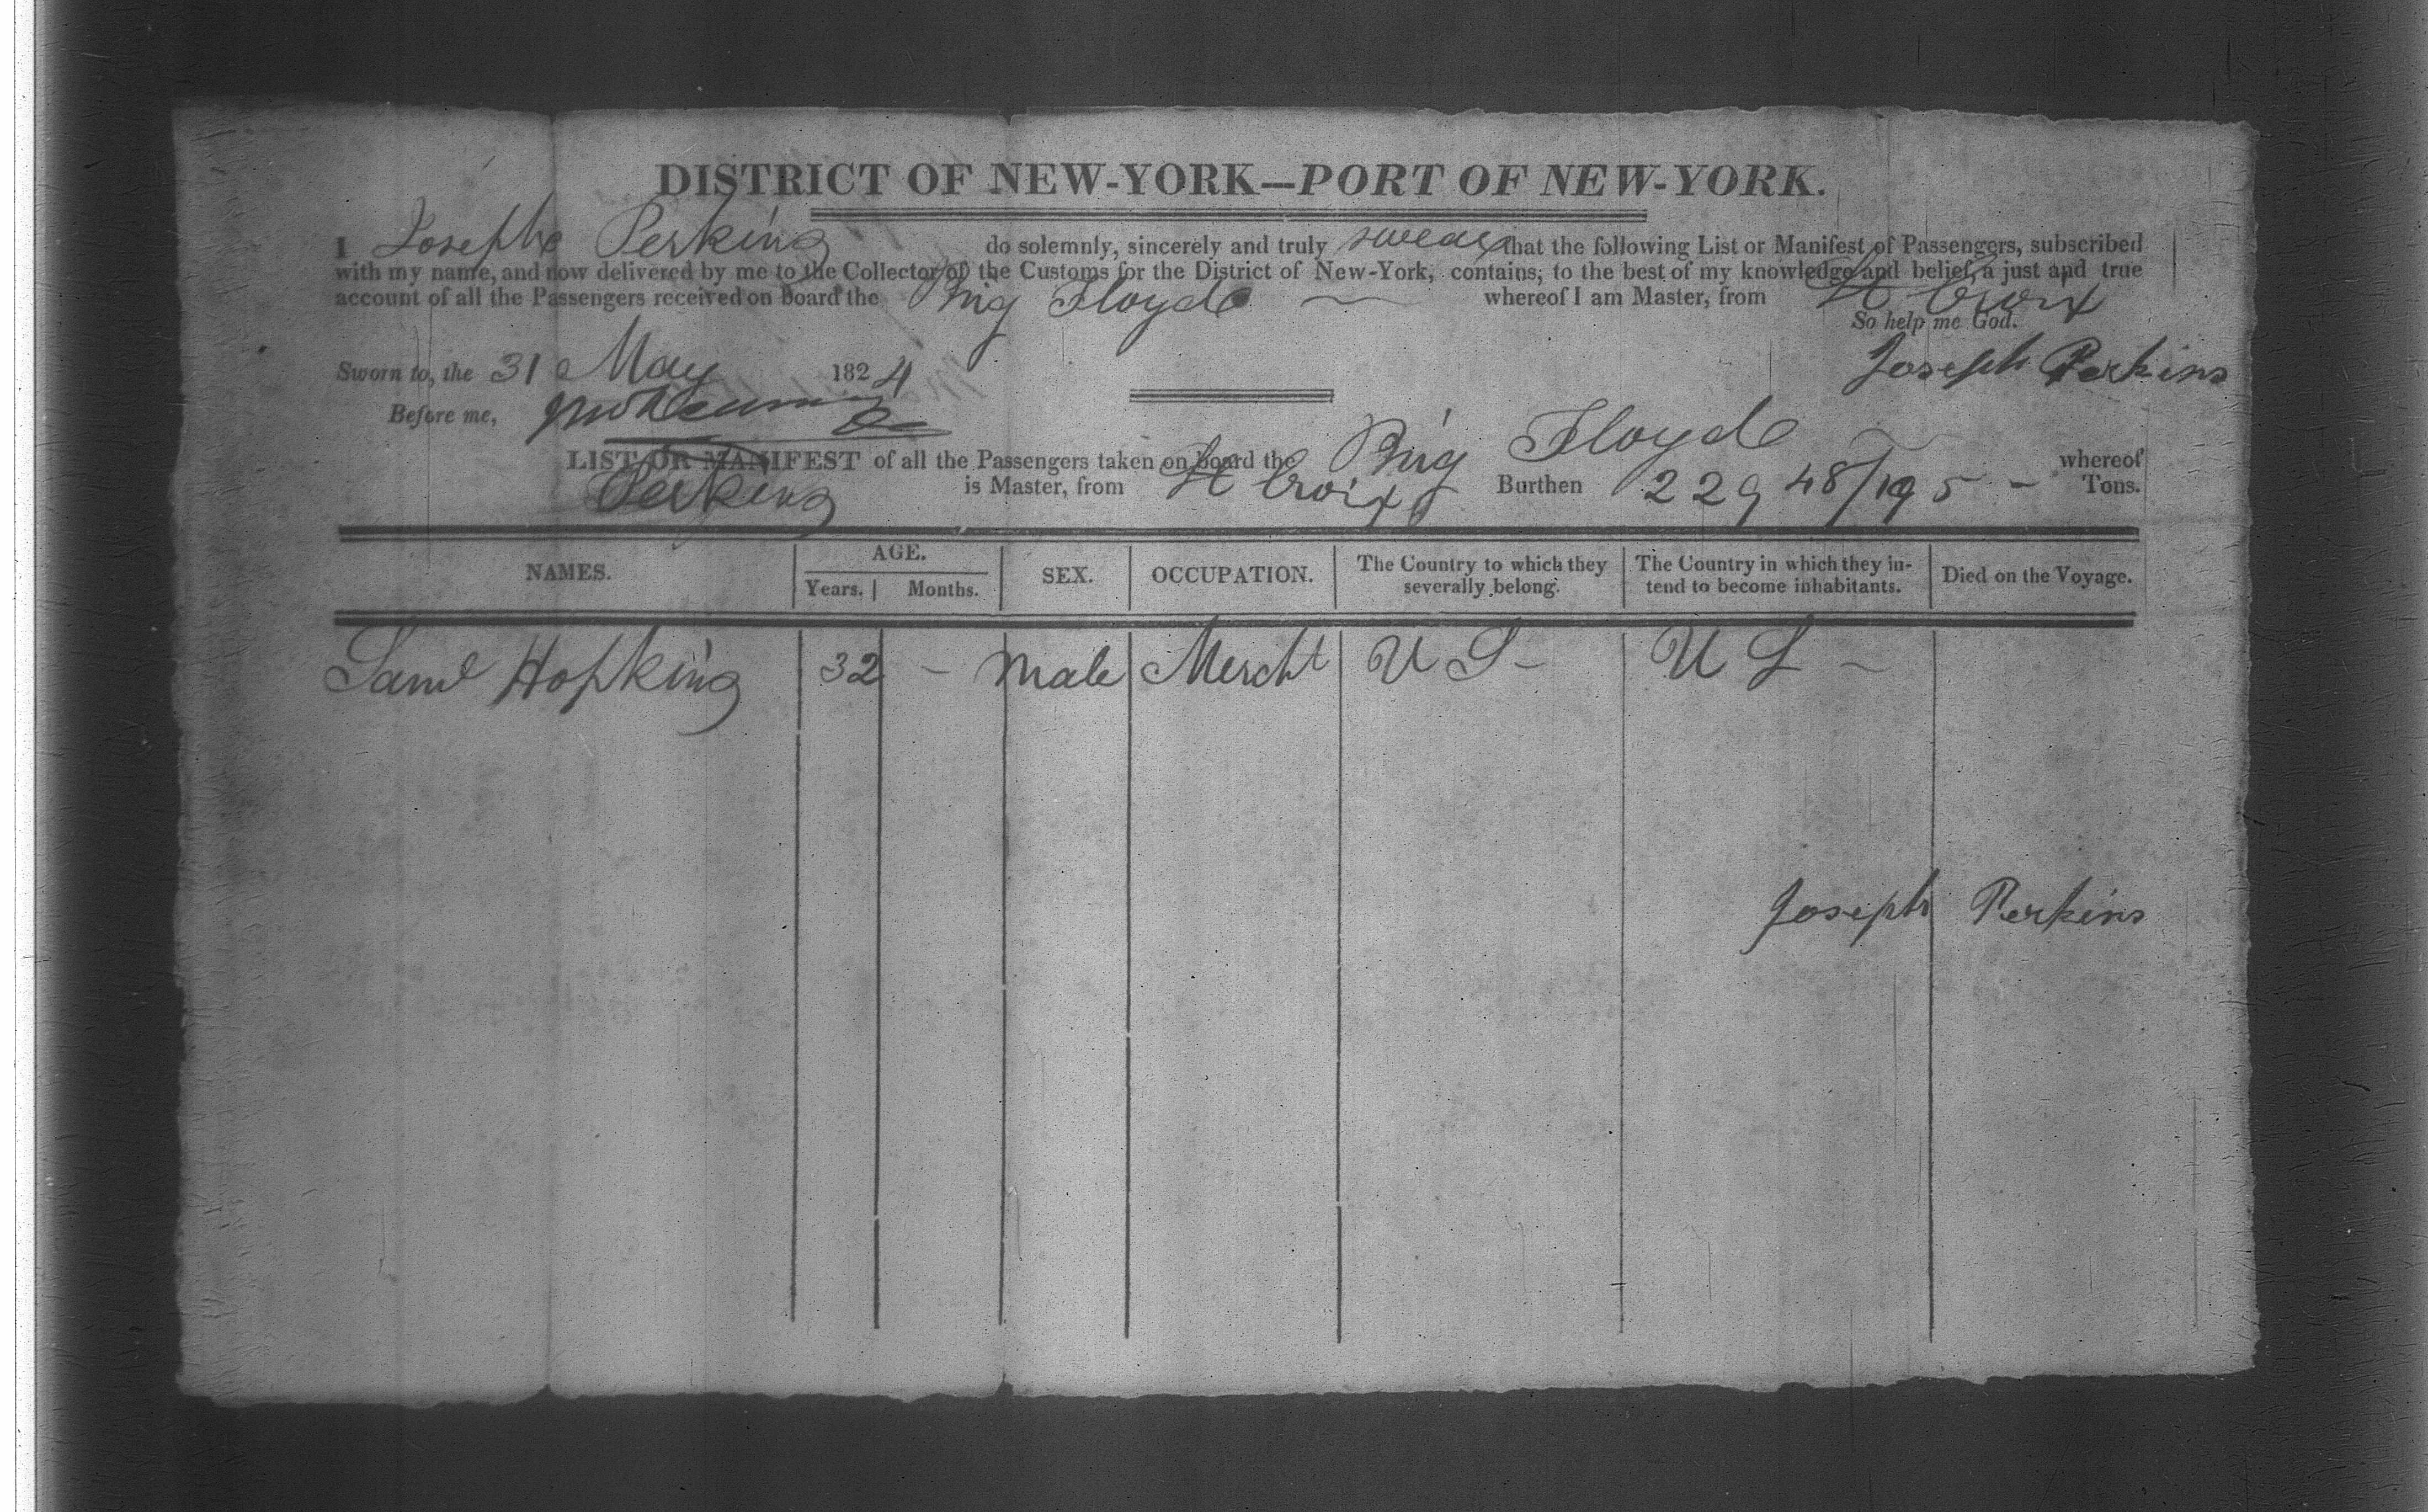 DISTRICT OF NEW-YORK—PORT OF NEW-YORK.
I Joseph Perkins do solemnly, sincerely and truly swear that the following List or Manifest of Passengers, subscribed
with my name, and now delivered by me to the Collector of the Customs for the District of New-York, contains; to the best of my knowledge and belief, a just and true
account of all the Passengers received on board the Brig Floyd — whereof I am Master, from St Croix
So help me God.
Sworn to, the 31 May 1824 Joseph Perkins
Before me,
LIST OR MANIFEST of all the Passengers taken on board the Brig Floyd whereof
Perkins is Master, from St Croix Burthen 229 48/95 - Tons.
NAMES. AGE. Years. Months. SEX. OCCUPATION. The Country to which they severally belong. The Country in which they intend to become inhabitants. Died on the Voyage.
Saml Hopkins 32 - Male Mercht U S - U S -
Joseph Perkins